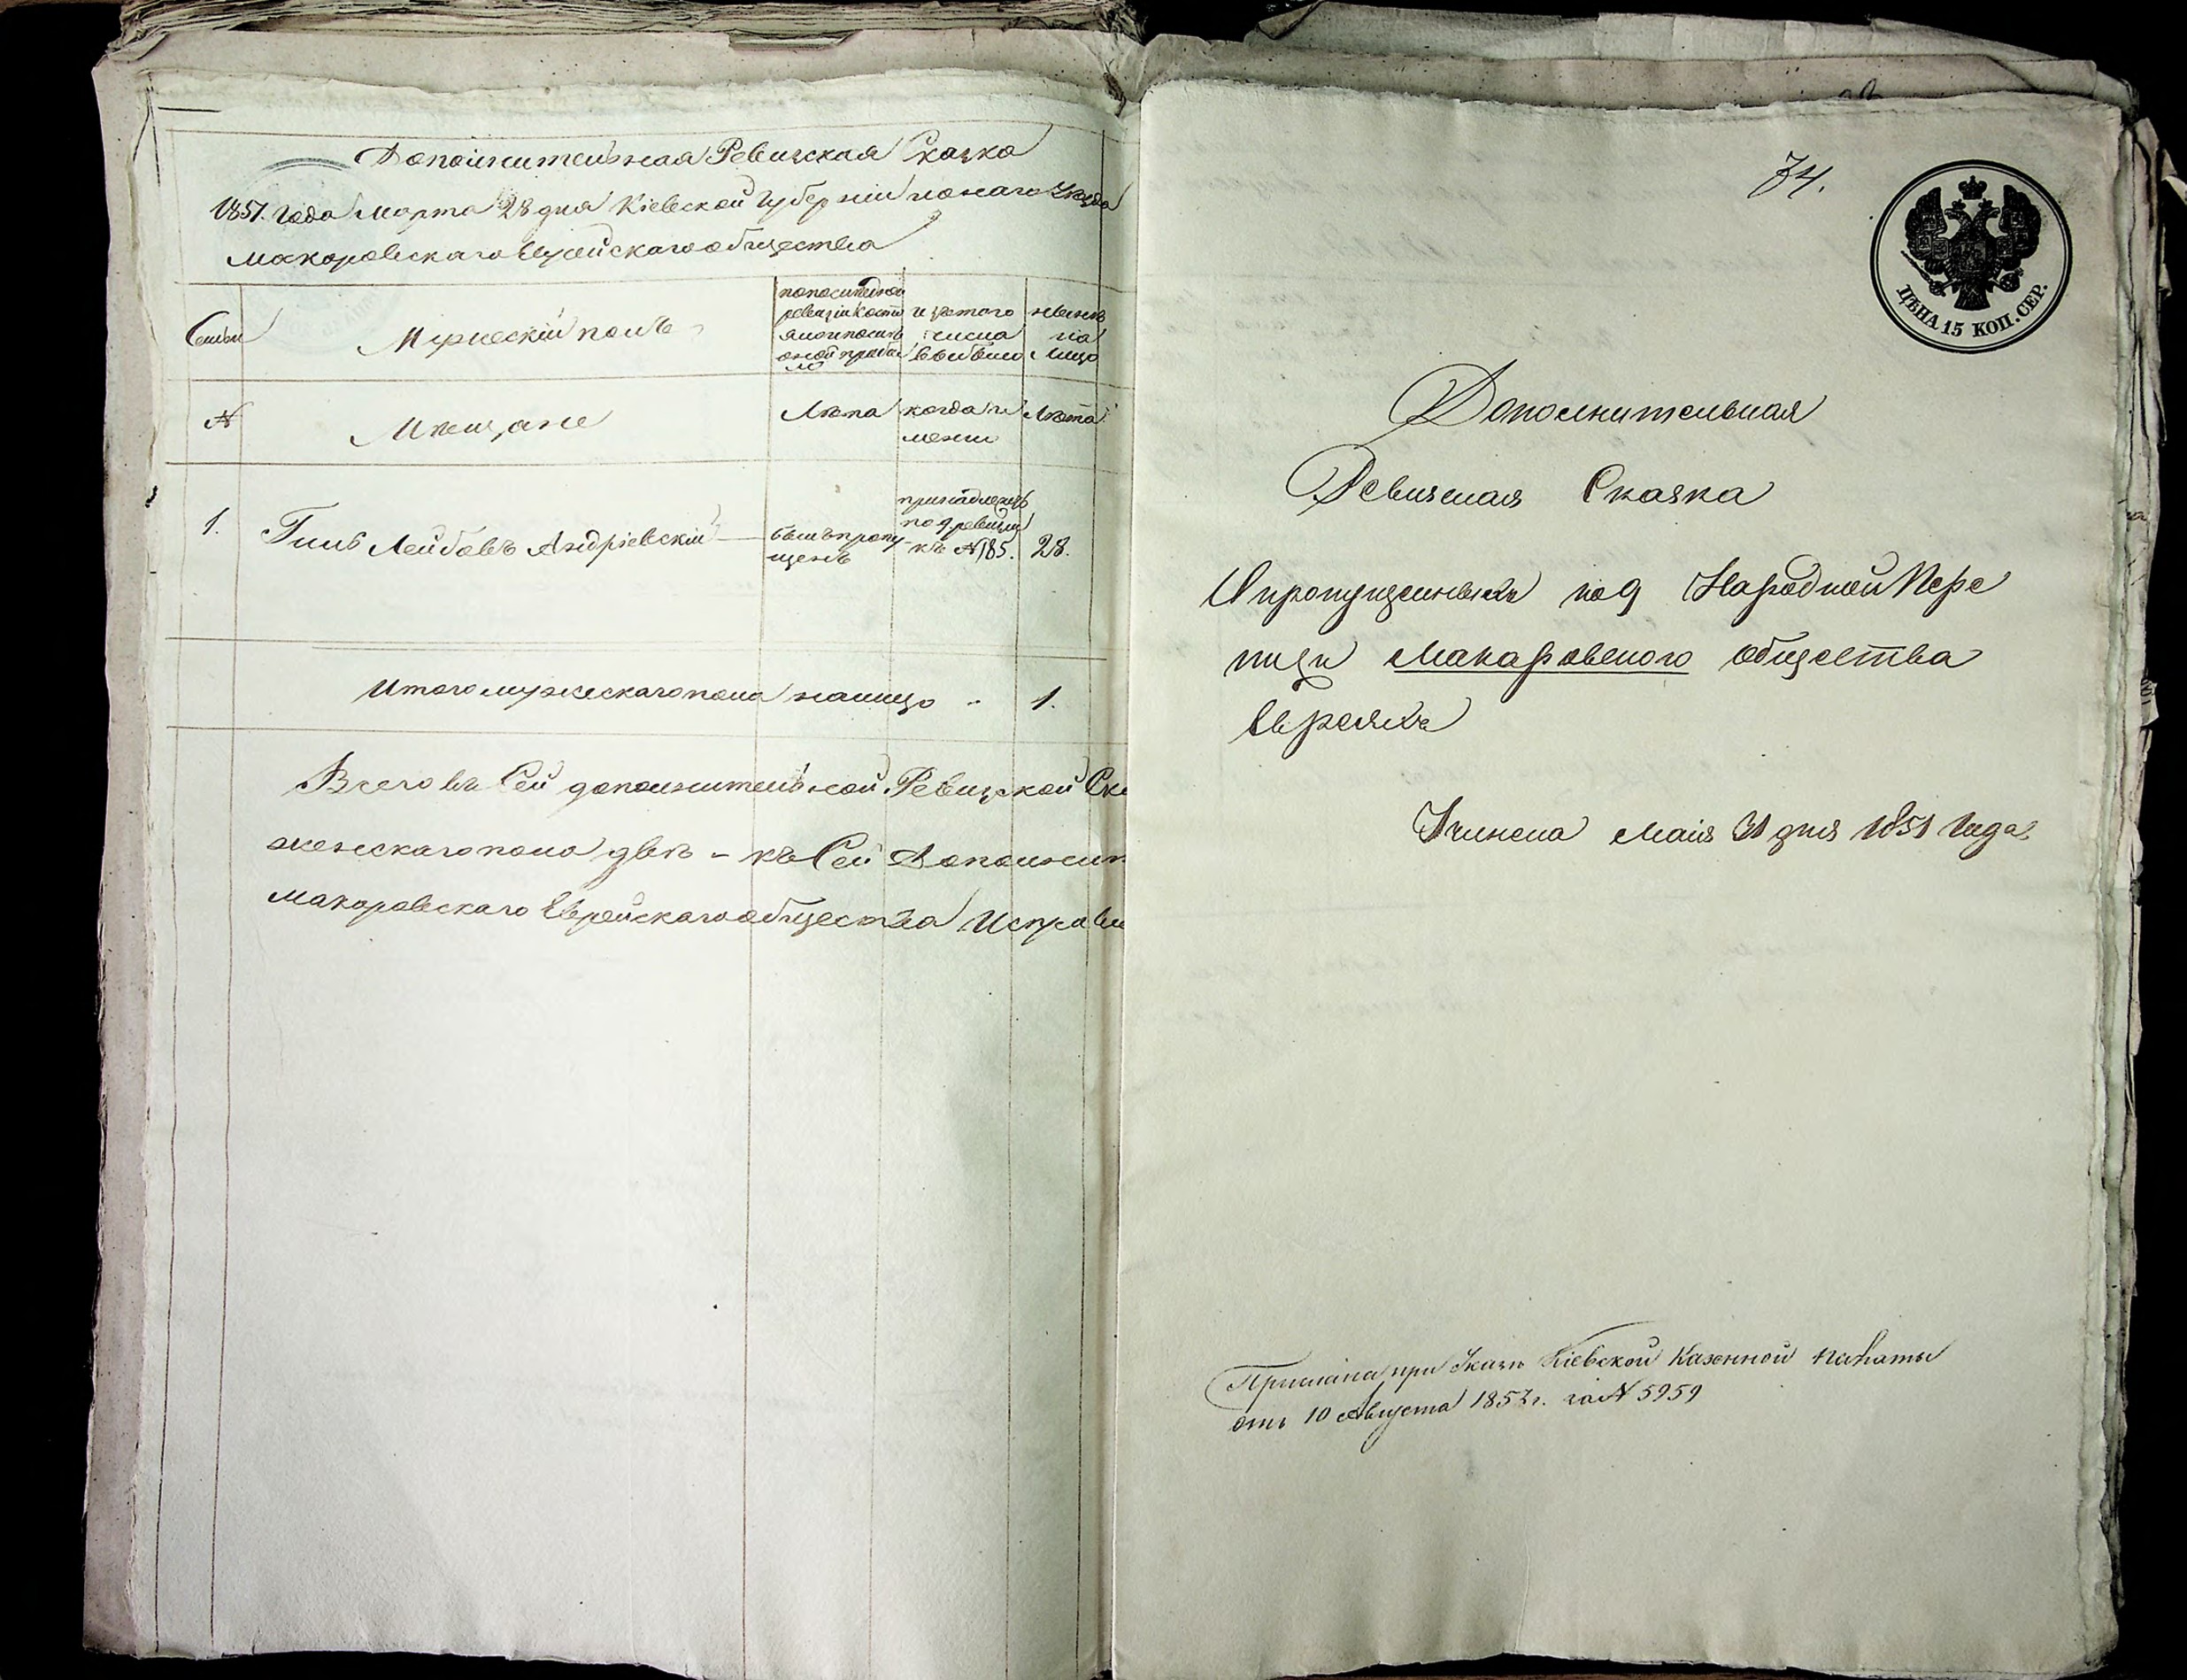 Дополнительная Ревизская Сказка
1851. года Марта 28 дня Кіевской Губерніи тогожъ Уѣзда
Макоровскаго Еврейскаго общества
Семьи
Мужескій полъ
по последней
ревизіи состо
яло и послѣ
оной прибы
ло
изъ того
числа
выбыло
нынѣ
на
лицо
№
Мѣщане
Лѣта
когда и
менно
Лѣта
1.
Гиль Лейбовъ Андріевскій
былъ пропу
щенъ
принадлежитъ
по 9 ревизіи
къ № 185.
28.
Итого мужескаго пола налицо
1.
Всего въ Сей дополнительной Ревизской Ска
женскаго пола двѣ - къ Сей Дополнит
Макоровскаго Еврейскаго общества Исправи
74.
ЦѢНА 15 КОП. СЕР.
Дополнительная
Ревизская Сказка
О пропущенныхъ по 9 Народной Пере
писи Макаровского общества
Евреяхъ
Учинена Маія 31 дня 1851 Года
Прислана при Указѣ Кіевской Казенной Палаты
отъ 10 Августа 1851 г. за № 5959